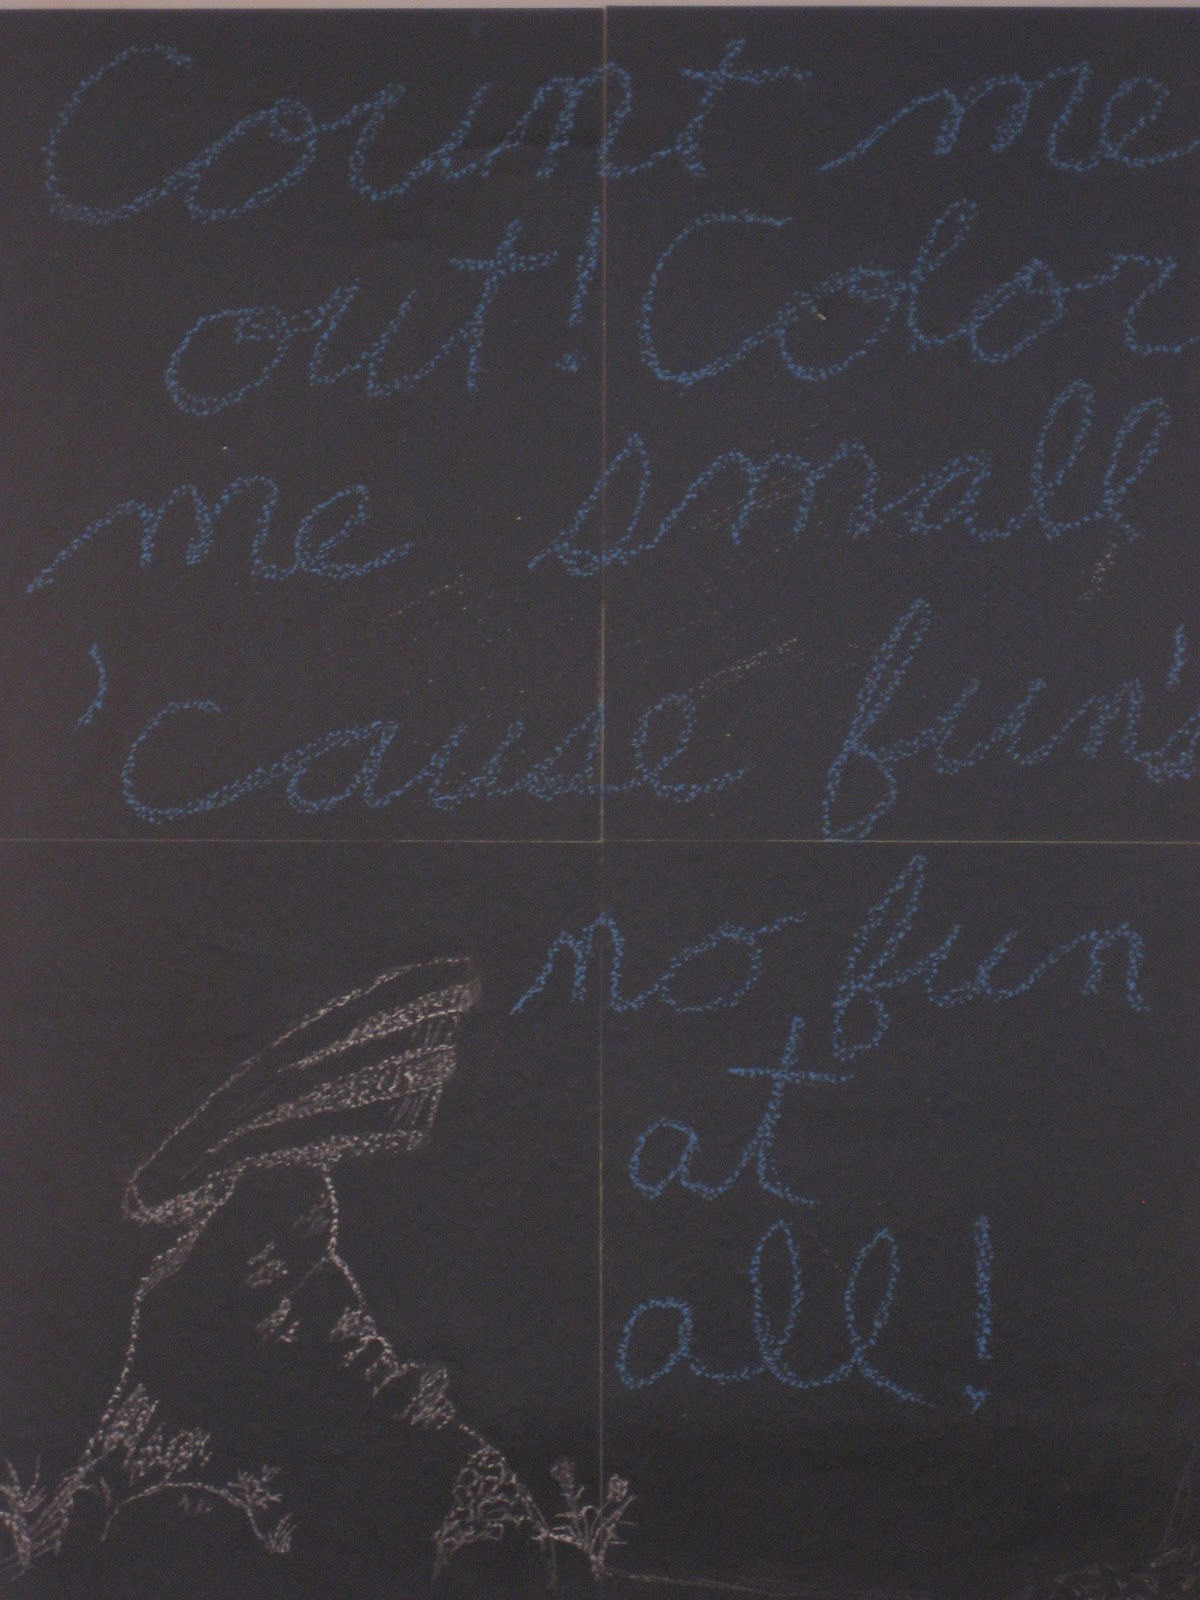 Count me
out! Color
me small
'cause fun's
no fun
at
all!